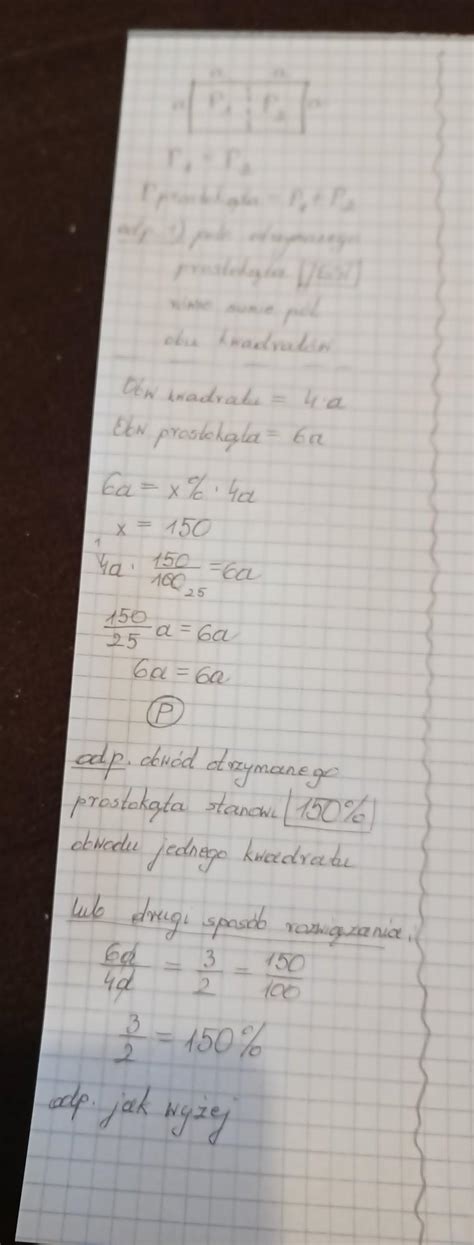 a a
a P₁ P₂ a
P₁ = P₂
P prostokąta = P₁ + P₂
odp 1) pole otrzymanego
prostokąta
sumie pól
obu kwadratów
Obw kwadratu = 4·a
Obw prostokąta = 6a
6a = x% · 4a
x = 150
¹4a · 150/100₂₅ = 6a
150/25 a = 6a
6a = 6a
P
odp. obwód otrzymanego
prostokąta stanowi 150%
obwodu jednego kwadratu
lub drugi sposób rozwiązania.
6a/4a = 3/2 = 150/100
3/2 = 150%
odp. jak wyżej